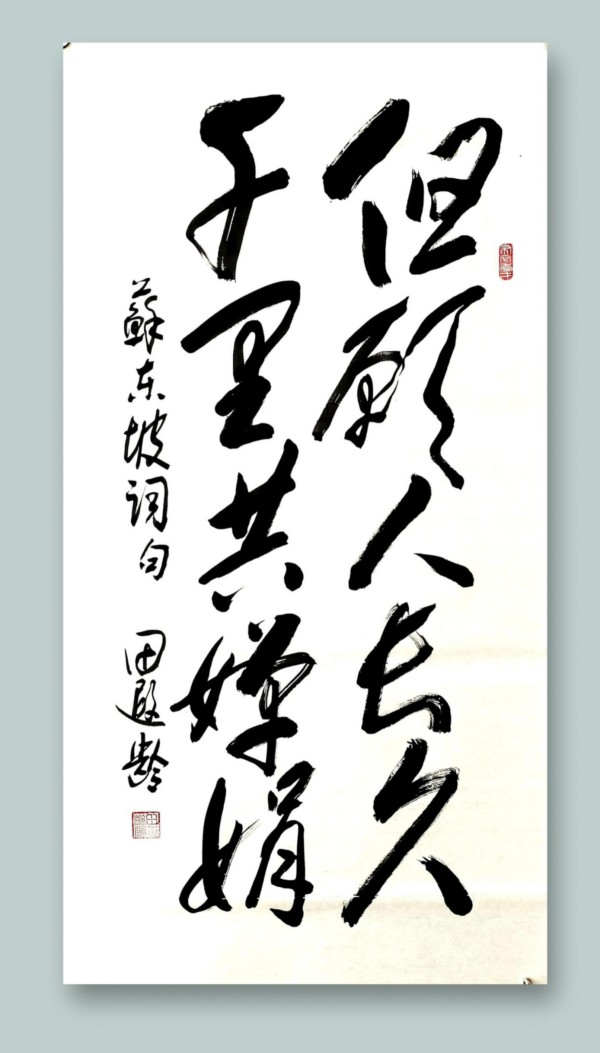 但願人长久
千里共婵娟
蘇东坡词句 田遐龄